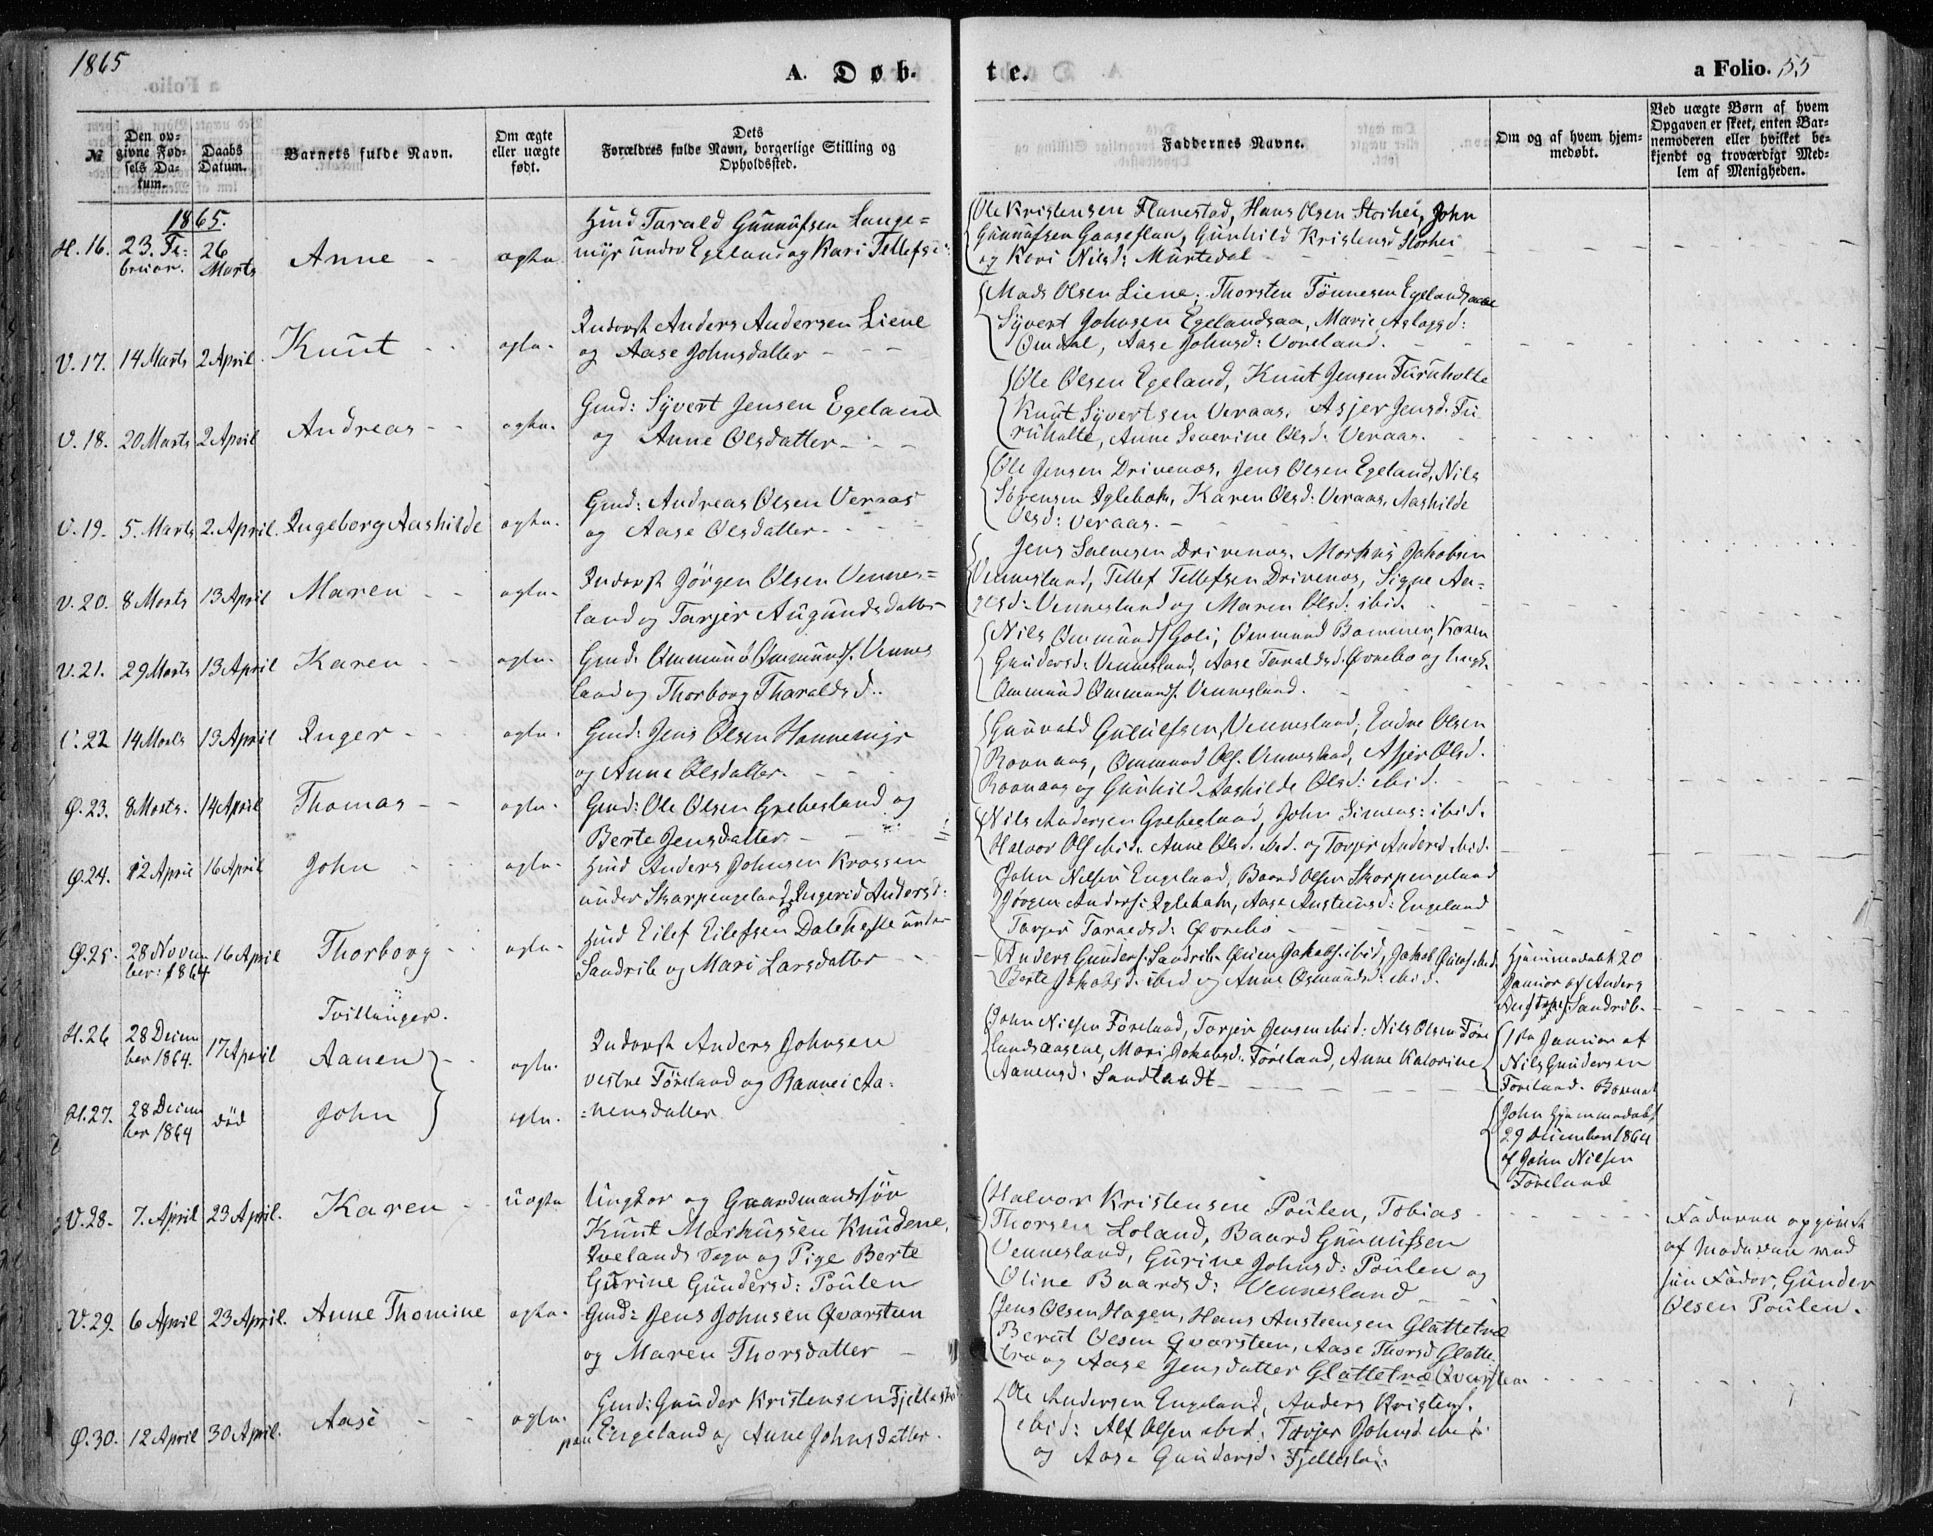 1865
A. Døb-
te.
a Folio. 55
№
Den ov-
givne Fød-
sels Da-
tum.
Daabs
Datum.
Barnets fulde Navn.
Om ægte
eller uægte
født.
Dets
Forældres fulde Navn, borgerlige Stilling og
Opholdssted.
Faddernes Navne.
Om og af hvem hjem-
medøbt.
Ved uægte Børn af hvem
Opgaven er skeet, enten Bar-
nemoderen eller hvilket be-
kjendt og troværdigt Med-
lem af Menigheden.
1865.
H. 16. 23. Fe- 26 Anne ægte
bruar. Marts
Huusd Tarald Gunnufsen Lange=
myr under Egeland og Kari Tellefsd:
Ole Kristensen Flanestad, Hans Olsen Storhei, John
Gunnufsen Gaaseflaa, Gunhild Kristensd Storhei
og Kari Nilsd: Murtedal
V. 17. 14 Marts 2 April Knut ægte
Inderst Anders Andersen Liene
og Aase Johnsdatter
Mads Olsen Liene, Thorsten Tønnesen Egelandsaae
Syvert Johnsen Egelandsaa, Marie Aslagsd:
Omdal, Aase Johnsd: Voreland.
V. 18. 20 Marts 2 April Andreas ægte
Gmd: Syvert Jensen Egeland
og Anne Olsdatter
Ole Olsen Egeland, Knut Jensen Furuholte
Knut Syvertsen Veraas, Asjer Jensd. Fu-
ruholte, Anne Severine Olsd: Veraas.
V. 19. 5. Marts 2. April. Ingeborg Aashilde ægte
Gmd: Andreas Olsen Veraas
og Aase Olsdatter
Ole Jensen Drivenes, Jens Olsen Egeland, Nils
Sørensen Iglebæk, Karen Olsd: Veraas, Aashilde
Olsd: Veraas.
V. 20. 8 Marts 13 April Maren ægte
Inderst Jørgen Olsen Vennes=
land og Tarjer Augundsdatter
Jens Salvesen Drivenes, Markus Jakobsen
Vennesland, Tellef Tellefsen Drivenes, Signe An-
gesd: Vennesland og Maren Olsd: ibid.
V. 21. 29 Marts 13 April Karen ægte
Gmd: Ommund Ommunds. Vennes
land og Thorborg Tharaldsd.
Nils Ommunds. Goli, Ommund Bommen, Karen
Gundersd: Vennesland, Aase Taraldsd. Øvrebø og
Ommund Ommunds. Vennesland.
V. 22 14 Marts 13 April Inger ægte
Gmd: Jens Olsen Honnemyr
og Anne Olsdatter.
Gunvald Gunnufsen Vennesland, Endre Olsen
Ravnaas, Ommund Ols. Vennesland, Asjer Olsd.
Ravnaas og Gunhild Aashilde Olsd: ibid.
Ø. 23. 8 Marts. 14 April Thomas ægte
Gmd: Ole Olsen Grebesland og
Berte Jensdatter
Nils Andersen Grebesland, John Simens: ibid.
Halvor Ols ibid. Anne Olsd. ibid. og Tarjer Andersd. ibid.
Ø. 24. 12 April 16 April John ægte
Huusd Anders Johnsen Krossen
under Skarpengeland, Ingerid Andersd:
John Nilsen Engeland, Baard Olsen Skarpengeland
Jørgen Anders: Iglebæk, Aase Austensd: Engeland
Tarjer Tarjeisd: Øvrebø
Ø. 25. 28 Novem 16 April Thorborg ægte
ber: 1864
Huusd Eilef Eilefsen Dalehefte under
Sandrib og Mari Larsdatter
Anders Gunders. Sandrib, Ole Jakobs. ibid, Jakob
Berte Jakobsd. ibid og Anne Osmundsd. ibid.
Hjemmedøbt 20
Januar af Anders
Sandrib.
Tvillinger.
H. 26 28 Decem 17 April Aanen ægte
ber 1864.
Inderst Anders Johnsen
vestre Føreland og Rannei Aa-
=nensdatter
John Nilsen Føreland, Tarjer Jensen ibid: Nils Olsen Føre
landsaasene, Mari Jakobsd: Føreland, Anne Katorine
Aanensd: Sandlandt
1ste Januar af
Nils Gundersen
Føreland. Barnet
H. 27. 28 Decem død John ægte
ber 1864
John hjemmedøbt
29 December 1864
af John Nilsen
Føreland
V. 28. 7. April 23 April. Karen uægte
Ungkar og Gaardmandssøn
Knut Markussen Knudene,
Ivelands Sogn og Pige Berte
Gurine Gundersd: Poulen
Halvor Kristensen Poulen, Tobias
Thorsen Loland, Baard Gunnufsen
Vennesland, Gurine Johnsd: Poulen og
Oline Baardsd: Vennesland
Faderen opgivet
af Moderen med
sin Fader, Gunder
Olsen Poulen.
V. 29. 6 April 23 April. Anne Thomine ægte
Gmd: Jens Johnsen Qvarsteen
og Maren Thorsdatter
Jens Olsen Hagen, Hans Austensen Glattetræ
Berut Olsen Qvarsteen, Aase Thorsd Glatte
træ og Aase Jensdatter Glattetræ Qvarsteen
Ø. 30. 12 April 30 April. Aase ægte
Gmd: Gunder Kristensen Fjellestad
paa Engeland og Anne Johnsdatter.
Ole Andersen Engeland, Anders Kristens.
ibid: Alf Olsen ibid: Tarjer Johnsd ibid
og Aase Gundersd: Fjellestad